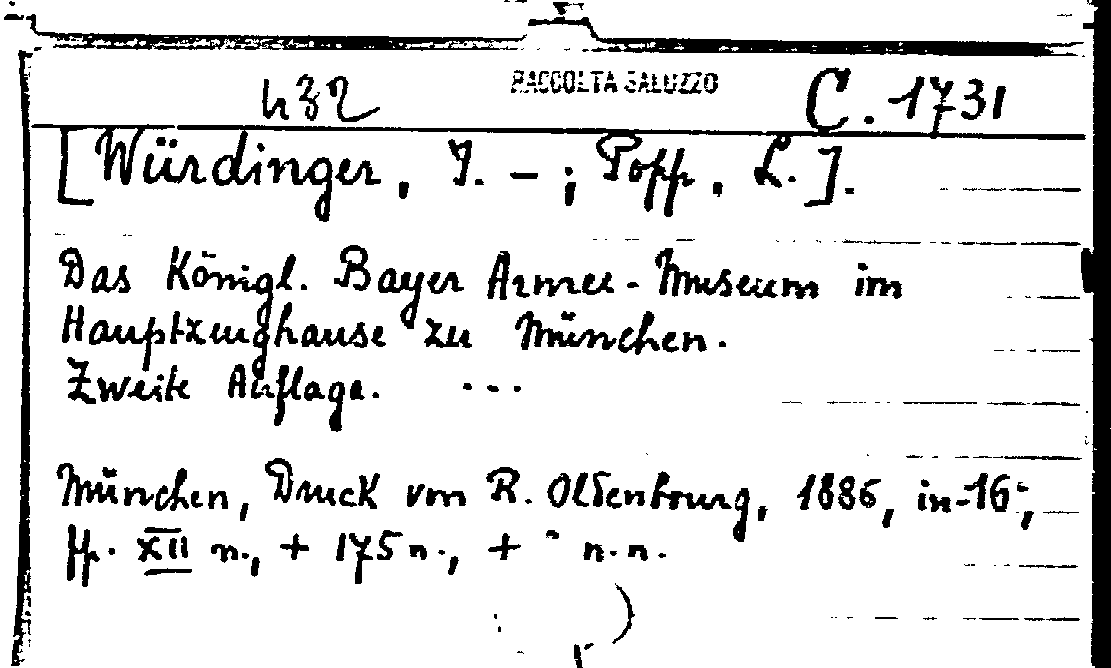 432 RACCOLTA SALUZZO C. 1731
[Würdinger, J. – ; Popp, L.].
Das Königl. Bayer Armee-Museum im
Hauptzeughause zu München.
Zweite Auflage. ...
München, Druck von R. Oldenbourg, 1886, in-16°,
pp. XII n., + 175 n., + n.n.